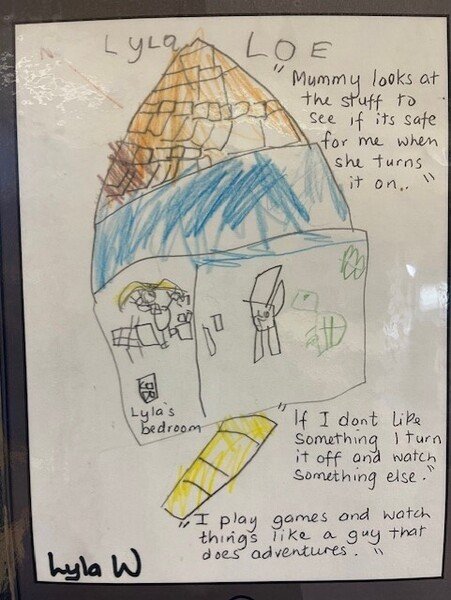 Lyla LOE
"Mummy looks at
the stuff to
see if its safe
for me when
she turns
it on.."
Lyla's
bedroom
"If I dont like
something I turn
it off and watch
something else."
"I play games and watch
things like a guy that
does adventures."
Lyla W